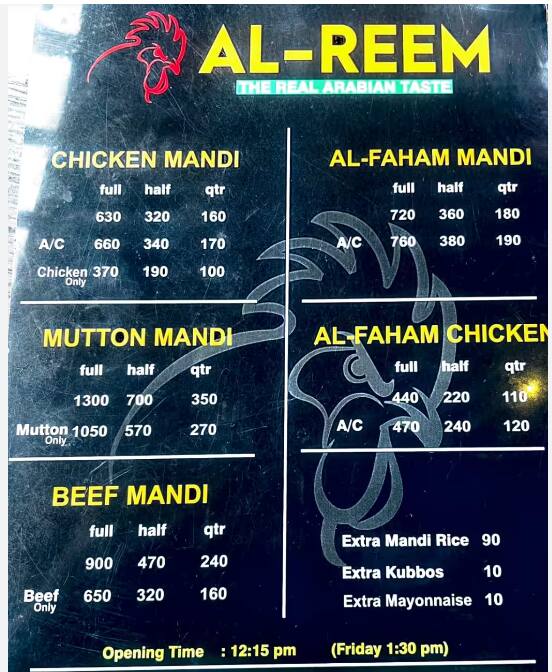 AL-REEM
THE REAL ARABIAN TASTE
CHICKEN MANDI
full half qtr
630 320 160
A/C 660 340 170
Chicken Only 370 190 100
MUTTON MANDI
full half qtr
1300 700 350
Mutton Only 1050 570 270
BEEF MANDI
full half qtr
900 470 240
Beef Only 650 320 160
AL-FAHAM MANDI
full half qtr
720 360 180
A/C 760 380 190
AL-FAHAM CHICKEN
full half qtr
440 220 110
A/C 470 240 120
Extra Mandi Rice 90
Extra Kubbos 10
Extra Mayonnaise 10
Opening Time : 12:15 pm (Friday 1:30 pm)